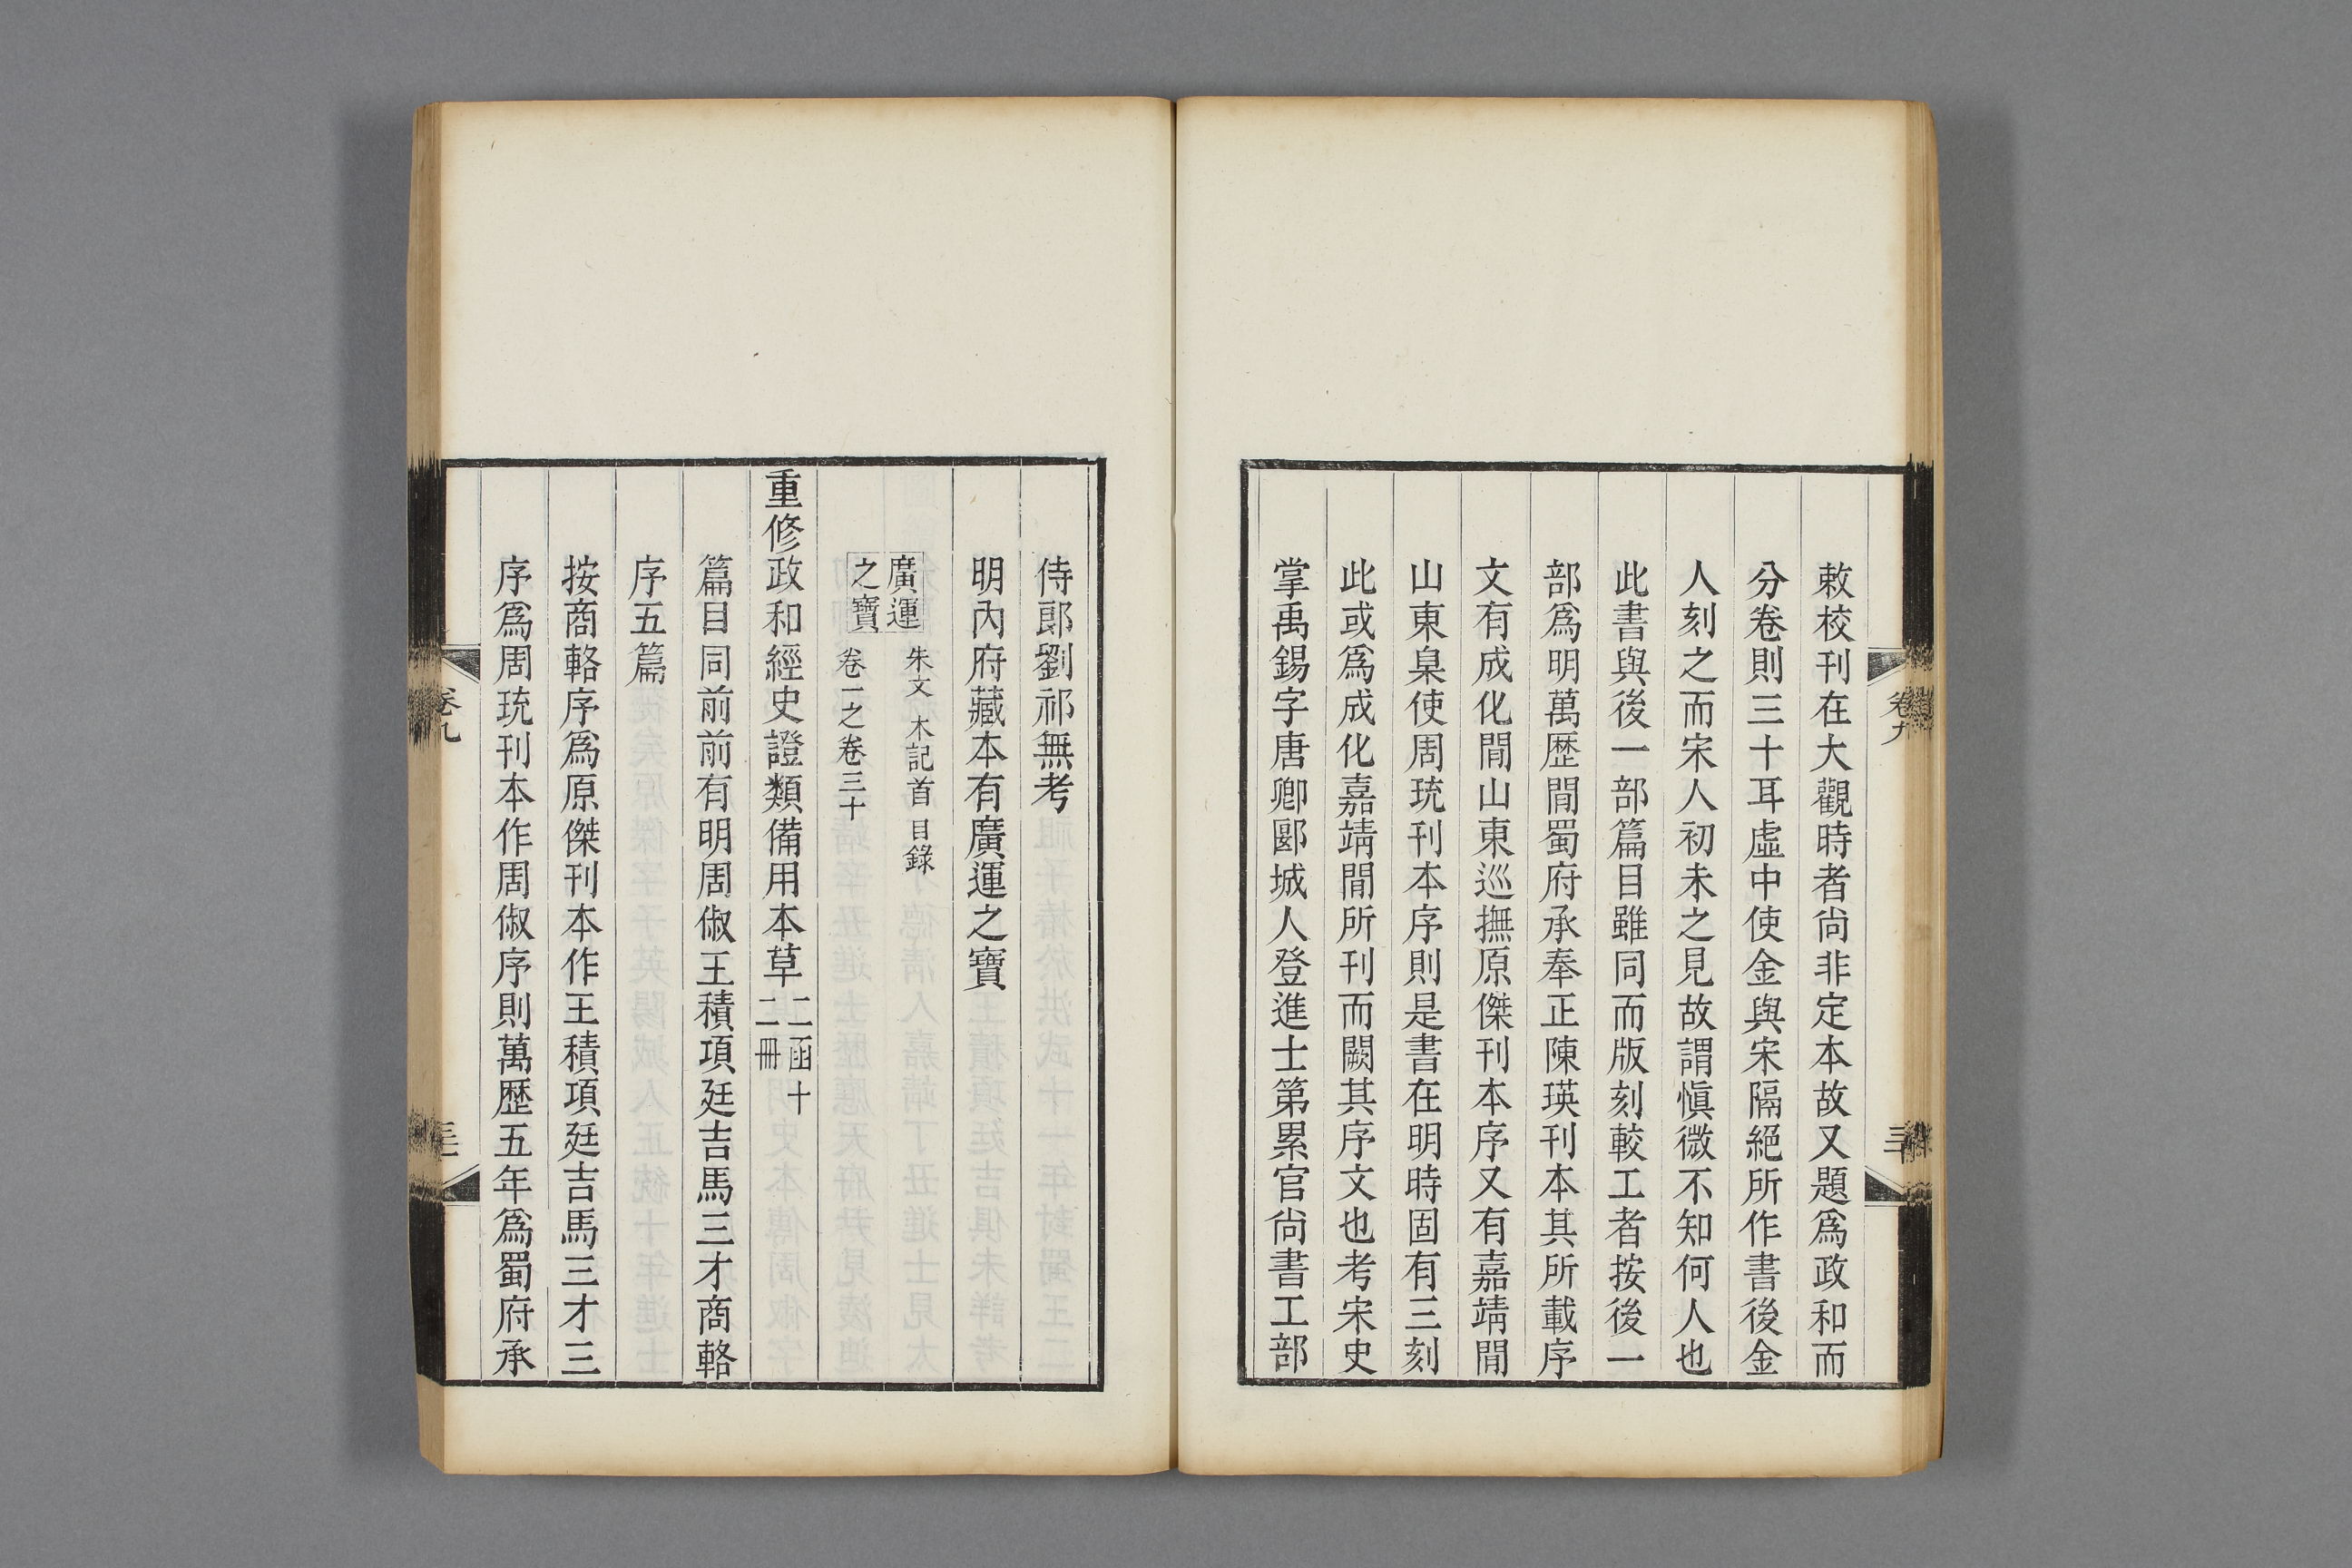 敕校刊在大觀時者尙非定本故又題爲政和而
分卷則三十耳虛中使金與宋隔絕所作書後金
人刻之而宋人初未之見故謂愼微不知何人也
此書與後一部篇目雖同而版刻較工者按後一
部爲明萬歷閒蜀府承奉正陳瑛刊本其所載序
文有成化閒山東巡撫原傑刊本序又有嘉靖閒
山東臬使周珫刊本序則是書在明時固有三刻
此或爲成化嘉靖閒所刊而闕其序文也考宋史
掌禹錫字唐卿郾城人登進士第累官尙書工部
侍郎劉祁無考
明內府藏本有廣運之寶
廣運之寶 朱文 木記首 目錄
卷一之卷三十
重修政和經史證類備用本草 二函十二冊
篇目同前前有明周俶王積項廷吉馬三才商輅
序五篇
按商輅序爲原傑刊本作王積項廷吉馬三才三
序爲周珫刊本作周俶序則萬歷五年爲蜀府承
卷九
卷九